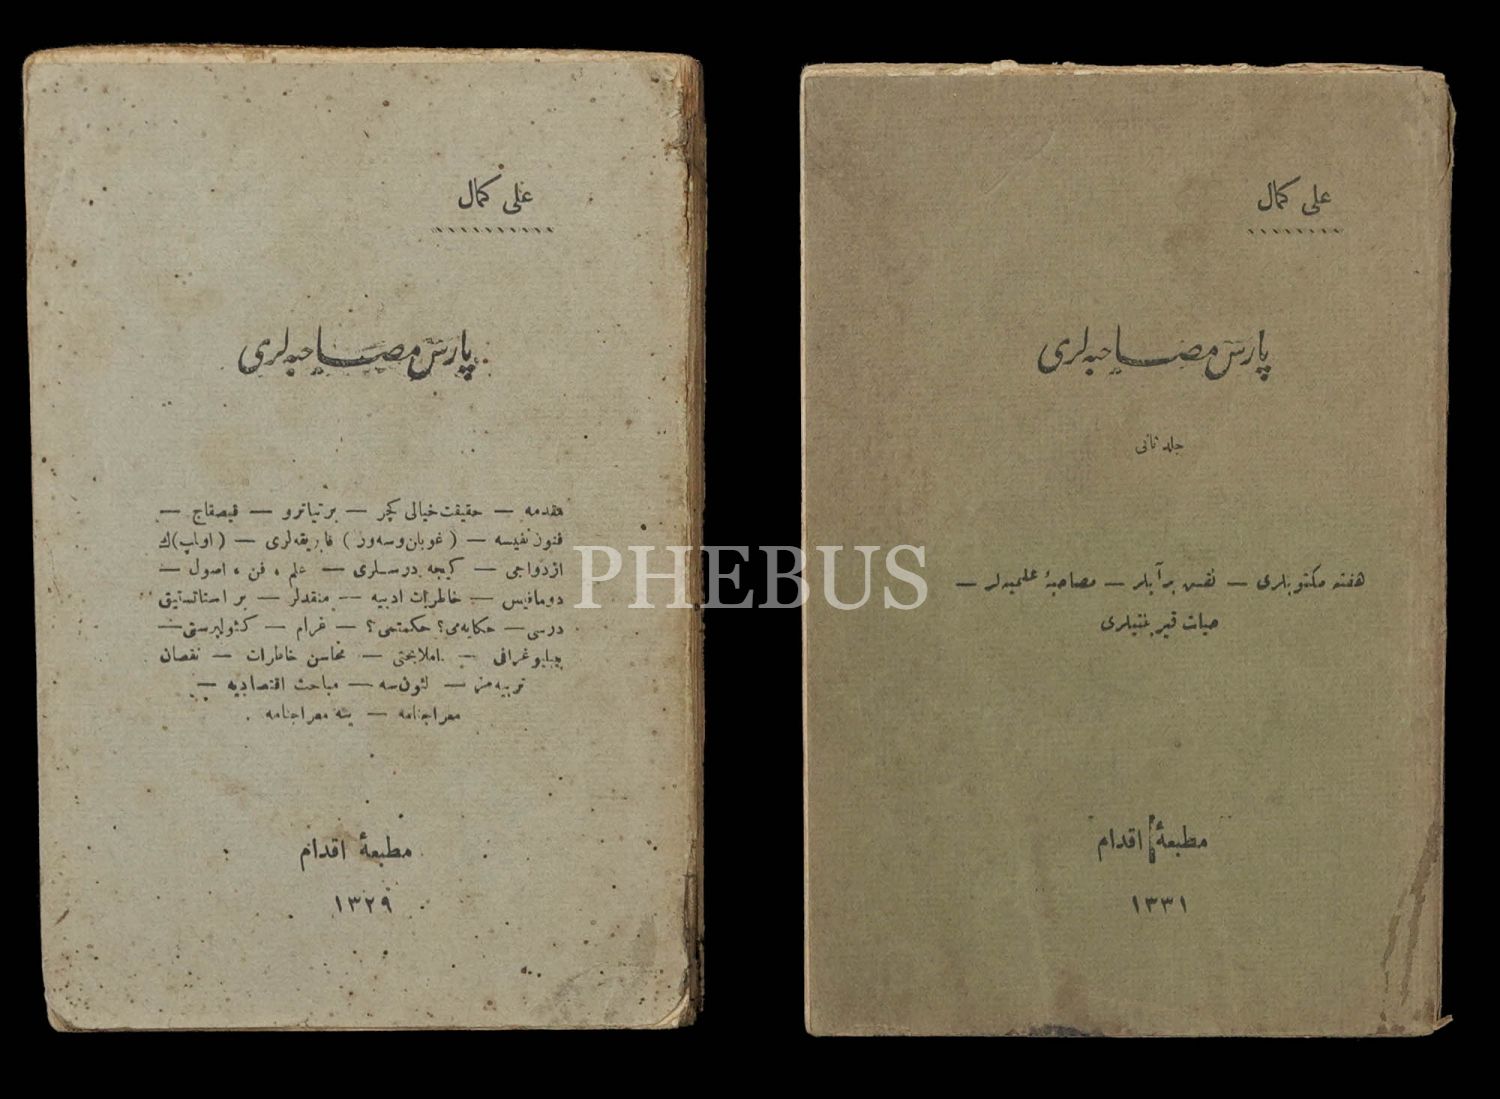 علی کمال
پارس مصاحبه‌لری
مقدمه — حقیقت خیالی کچر — بر تیاترو — قیصقاج —
فنون نفیسه — ( غوبان و سه‌ور ) فابریقه‌لری — ( اوایپ) ك
ازدواجی — کیجه درسلری — علم ، فن ، اصول —
دومافیس — خاطرات ادبیه — منقدلر — بر استاتستیق
درسی — حکایه‌می؟ حکمتمی؟ — غرام — کئولپرستی —
بیبلیوغرافی — املا بحثی — محاسن خاطرات — نقصان
تربیه‌مز — لئون سه — مباحث اقتصادیه —
معراجنامه — ینه معراجنامه .
مطبعۀ اقدام
١٣٢٩
علی کمال
پارس مصاحبه‌لری
جلد ثانی
هفته مکتوبلری — نفس بر آیلر — مصاحبۀ علمیه‌لر —
حیات قیرغینلری
مطبعۀ اقدام
١٣٣١
PHEBUS